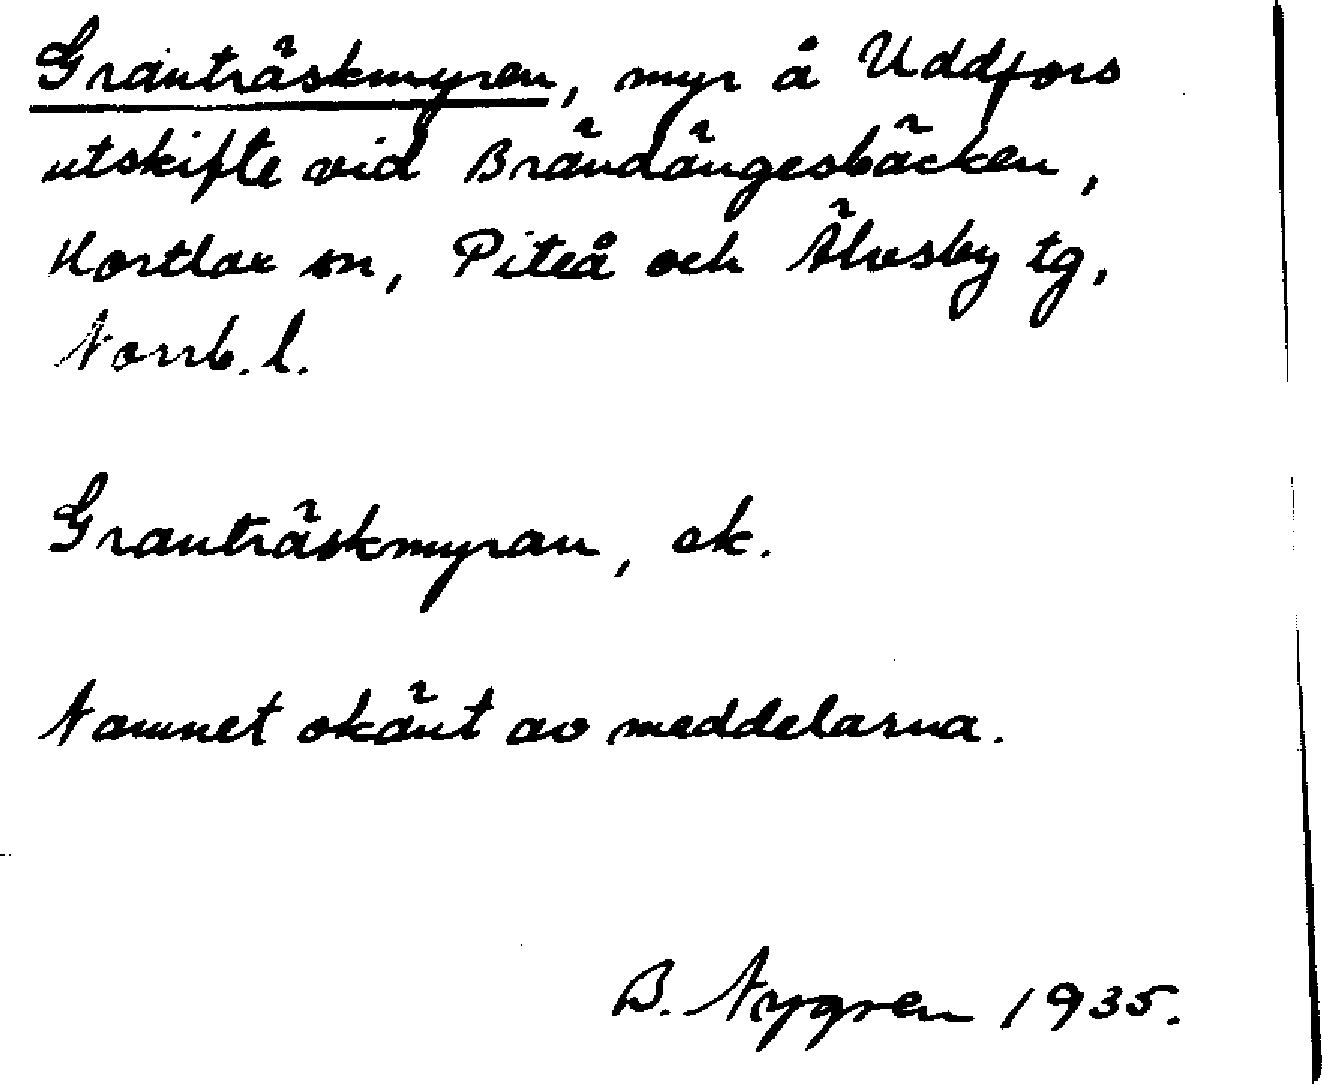 Granträskmyren, myr å Uddfors
utskifte vid Brändängesbäcken,
Hortlax sn, Piteå och Älvsby tg,
Norrb. l.
Granträskmyran, ek.
Namnet okänt av meddelarna.
B. Nygren 1935.